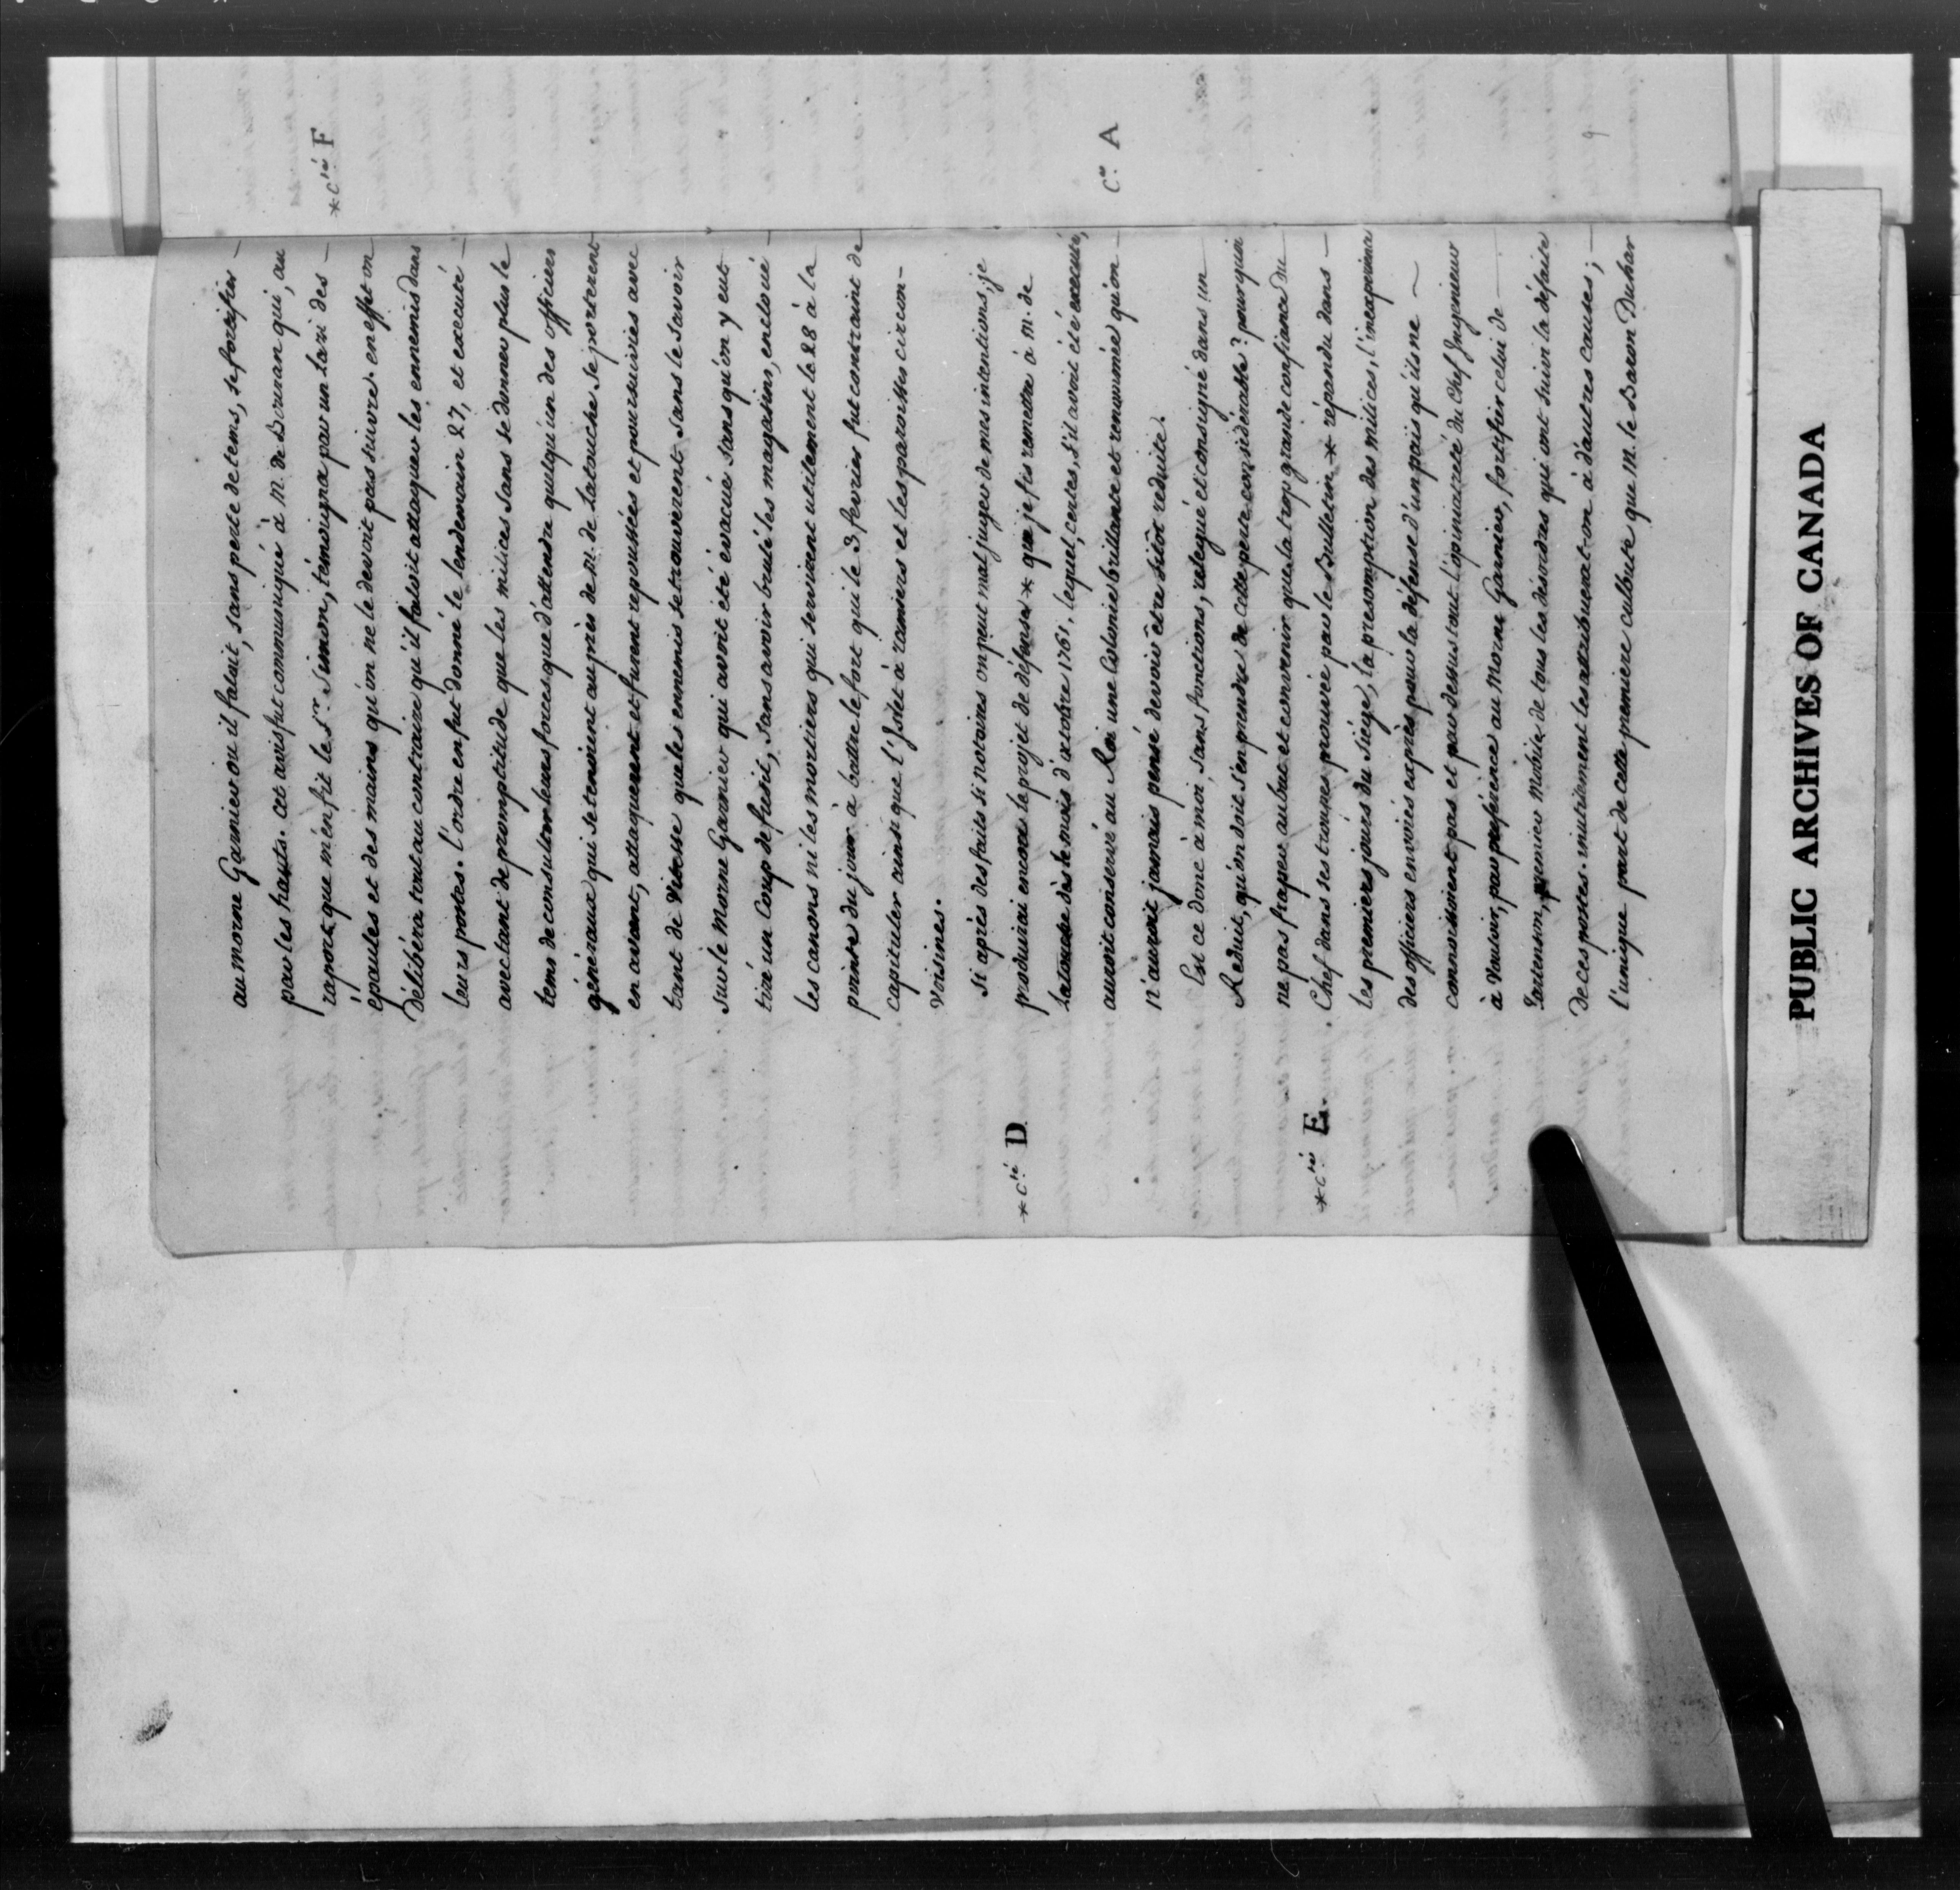 au morne Garnier ou il faluit, sans perte de tems, se fortifier
par les hauts. cet avis fut communiqué à M. de Bournan qui, au
raport que m'en fit le Sr. Simon, témoigna par un lavi des
épaules et des mains qu'on ne le devoit pas suivre. en effet on
délibéra tout au contraire qu'il faloit attaquer les ennemis dans
leurs postes. l'ordre en fut donné le lendemain 27, et executé
avec tant de promptitude que les milices sans se donner plus le
tems de consulter leurs forces que d'attendre quelqu'un des officiers
généraux qui se tenoient auprès de M. de Latouche, se porterent
en avant, attaquerent et furent repoussées et poursuivies avec
tant de vitesse que les ennemis se trouverent sans le savoir
sur le Morne Garnier qui avoit eté évacué sans qu'on y eut
tiré un Coup de fusil, sans avoir brulé les magasins, encloué
les canons ni les mortiers qui servirent utilement le 28 à la
pointe du jour à battre le fort qui le 3 fevrier fut contraint de
capituler ainsi que l'Islet à ramiers et les paroisses circon-
voisines.
Si après des faits si notoires on peut mal juger de mes intentions, je
produirai encore le projet de défense * que je fis remettre à M. de
Latouche dès le mois d'octobre 1761, lequel, certes, s'il avoit été executé,
auroit conservé au Roi une Colonie brillante et renommée qu'on
n'auroit jamais pensé devoir être sitôt reduite.
Est ce donc à moi, sans fonctions, relegué et consigné dans un
Reduit, qu'on doit s'en prendre de cette perte considérable? pourquoi
ne pas fraper au but et convenir que la trop grande confiance du
Chef dans ses troupes prouvée par le Bulletin * répandu dans
les premiers jours du Siége, la presomption des milices, l'inexperience
des officiers envoiés exprès pour la défense d'un païs qu'ils ne
connoissoient pas et par dessus tout l'opiniatreté du Chef Ingenieur
à vouloir, par preference au Morne Garnier, fortifier celui de
Tartenson, premier mobile de tous les desordres qui ont suivi la défaite
de ces postes. inutilement les attribueroit-on à d'autres causes;
l'unique part de cette premiere culbute que M. le Baron Duhar
*cté F
cee A
*cté D
*cté E.
9
PUBLIC ARCHIVES OF CANADA